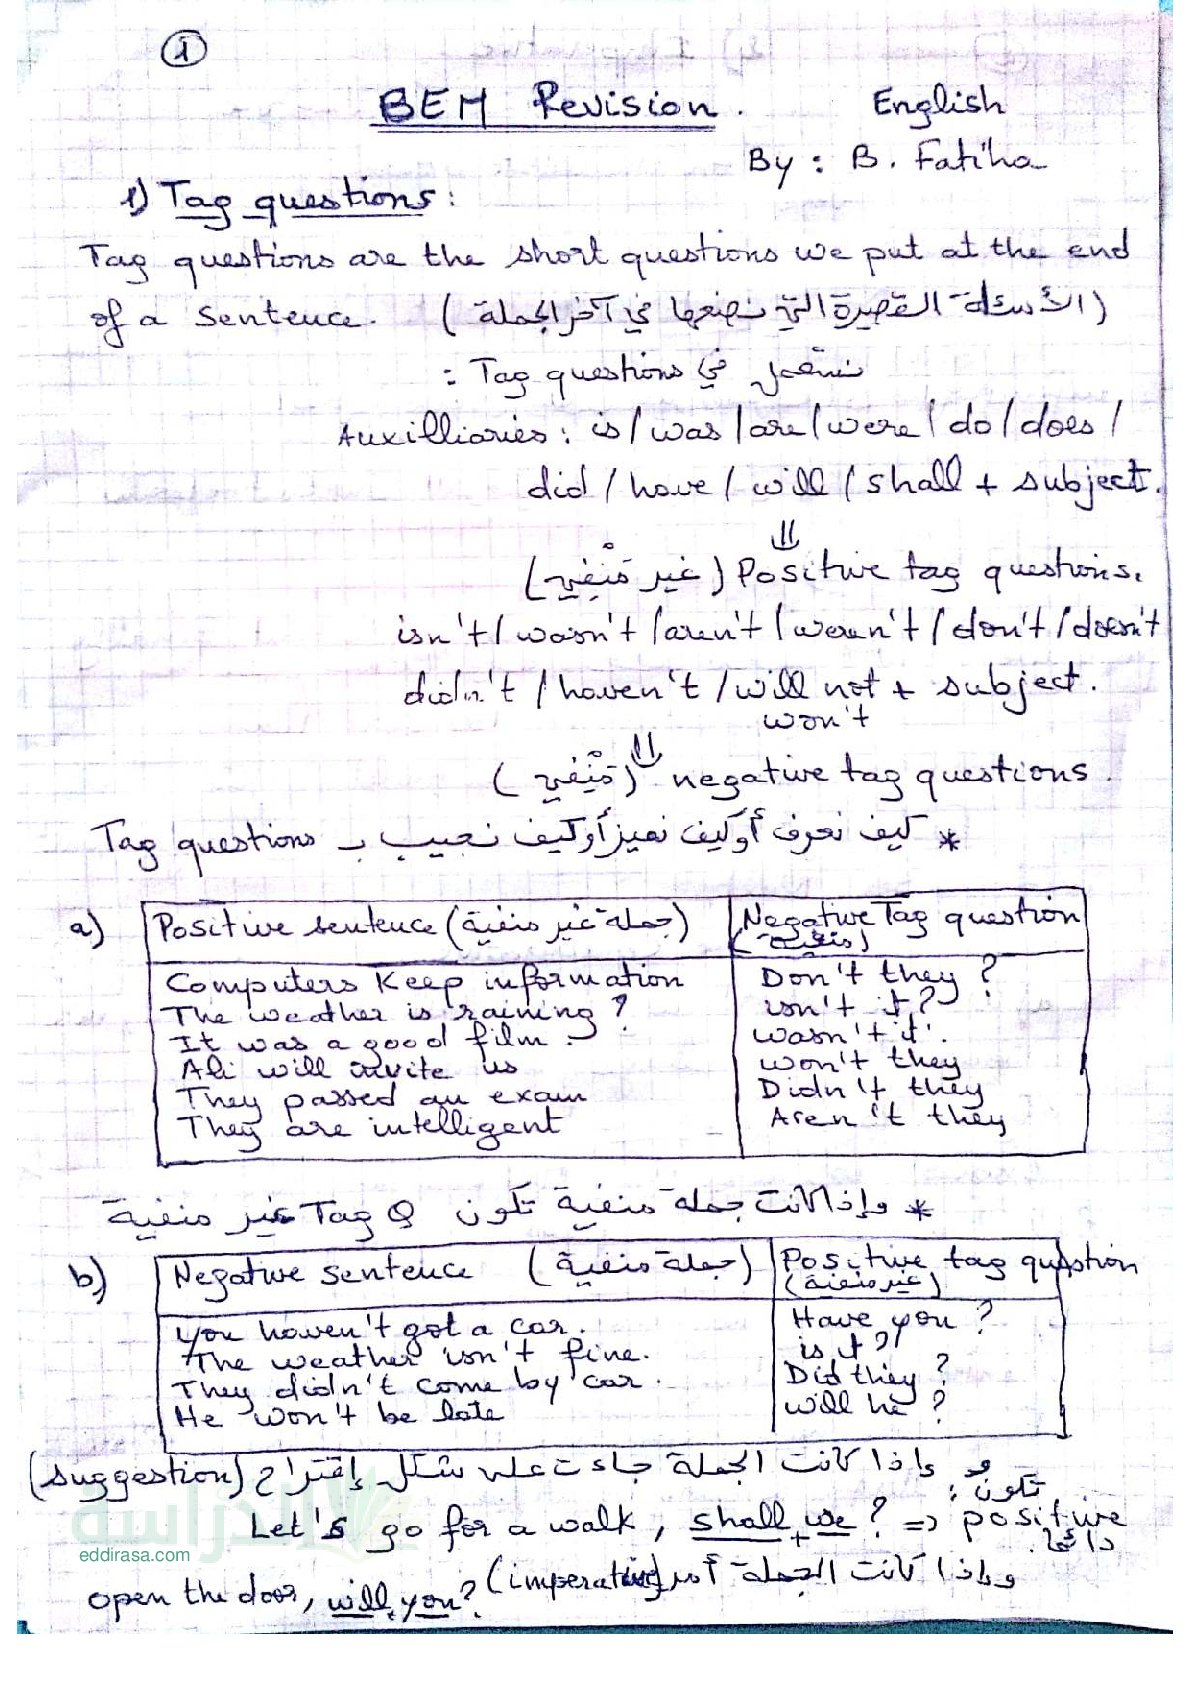 1
BEM Revision. English
By: B. Fatiha
1) Tag questions:
Tag questions are the short questions we put at the end
of a sentence. (الأسئلة القصيرة التي نضعها في آخر الجملة)
نستعمل في Tag questions :
Auxilliaries: is / was / are / were / do / does /
did / have / will / shall + subject.
(غير مَنْفِي) Positive tag questions.
isn't / wasn't / aren't / weren't / don't / doesn't
didn't / haven't / will not + subject.
won't
(مَنْفِي) negative tag questions.
* كيف نعرف أو كيف نميز أو كيف نجيب بـ Tag questions
a) Positive sentence (جملة غير منفية) Negative Tag question
(منفية)
Computers Keep information Don't they?
The weather is raining? isn't it?
It was a good film. wasn't it.
Ali will invite us won't they
They passed an exam Didn't they
They are intelligent Aren't they
* وإذا كانت جملة منفية تكون Tag Q غير منفية
b) Negative sentence (جملة منفية) Positive tag question
(غير منفية)
You haven't got a car. Have you?
The weather isn't fine. is it?
They didn't come by car. Did they?
He won't be late will he?
وإذا كانت الجملة جاءت على شكل إقتراح (suggestion)
تكون:
Let's go for a walk, shall + we? => positive
دائما.
وإذا كانت الجملة أمر (imperative)
open the door, will + you?
الدراسة
eddirasa.com